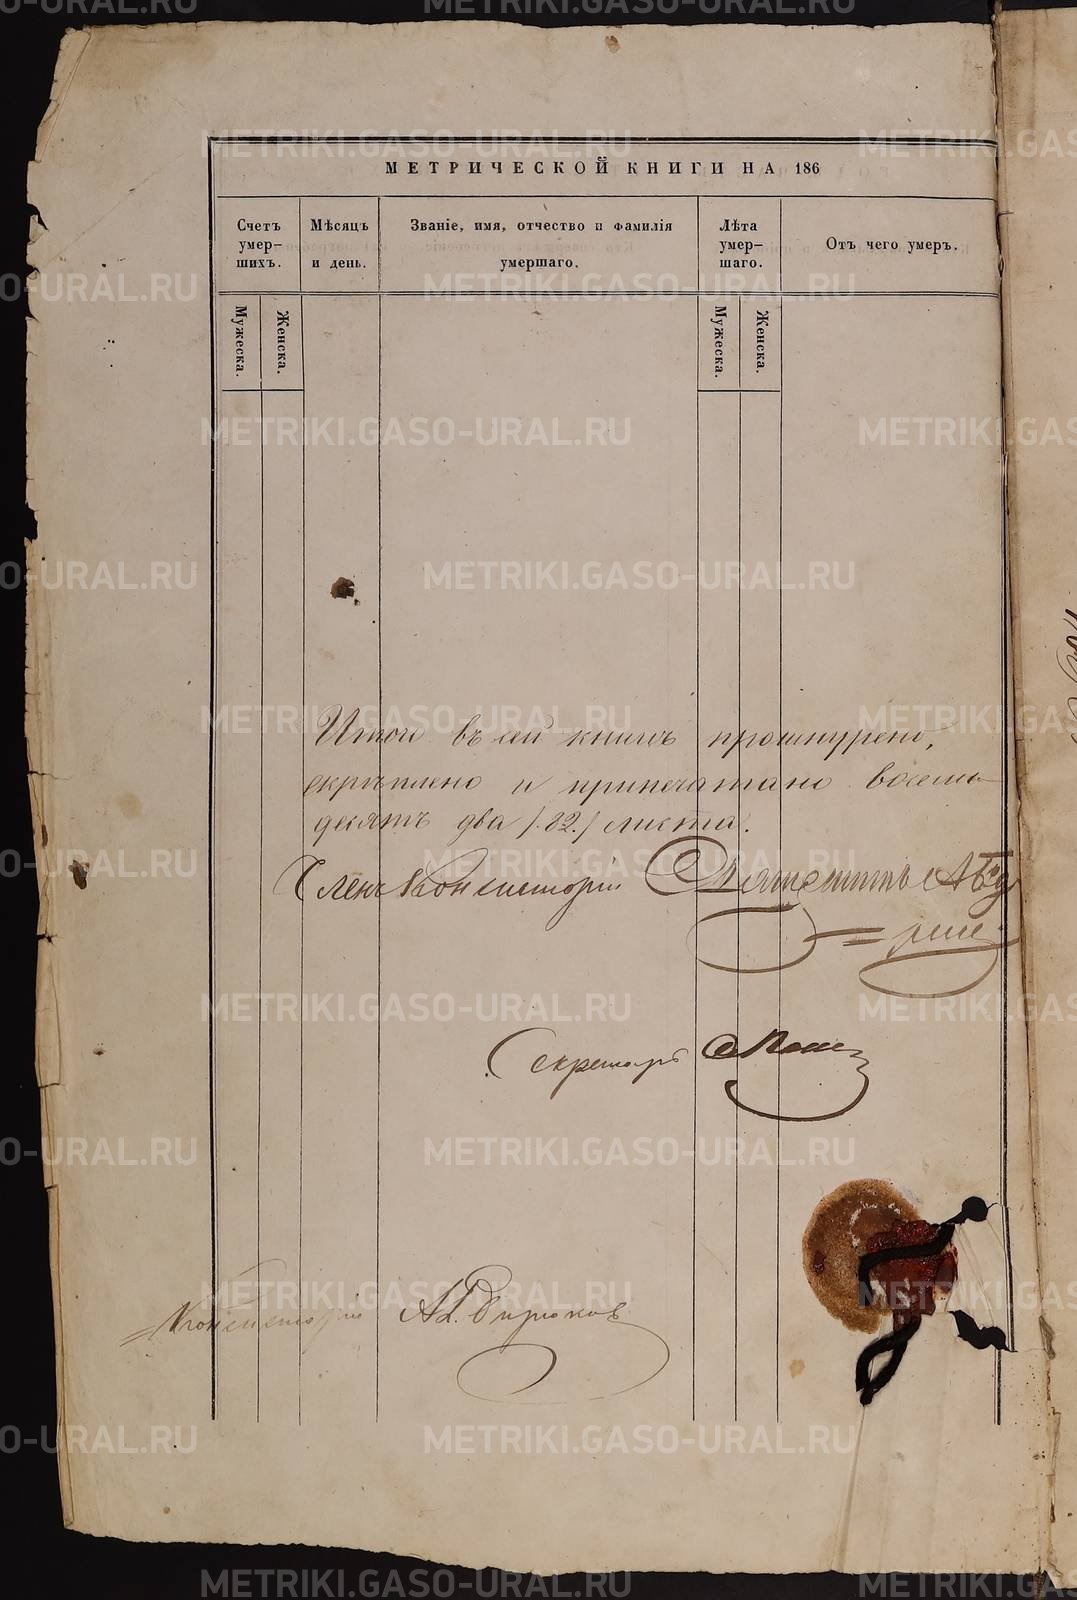 МЕТРИЧЕСКОЙ КНИГИ НА 186
Счетъ умер-шихъ.
Мѣсяцъ и день.
Званіе, имя, отчество и фамилія умершаго.
Лѣта умер-шаго.
Отъ чего умеръ.
Мужеска.
Женска.
Мужеска.
Женска.
Итого въ сей книгѣ прошнурено,
скрѣплено и припечатано восемь
десятъ два /.82./ листа.
Членъ Консисторіи
Секретарь
Консисторіи Ал. Бирюковъ
METRIKI.GASO-URAL.RU